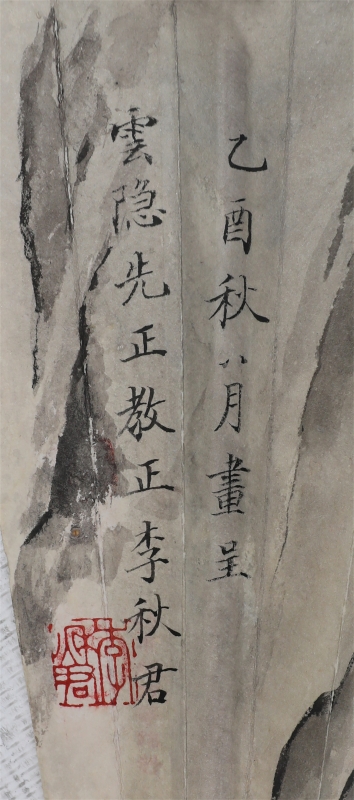 乙酉秋八月畫呈
雲隐先正教正李秋君